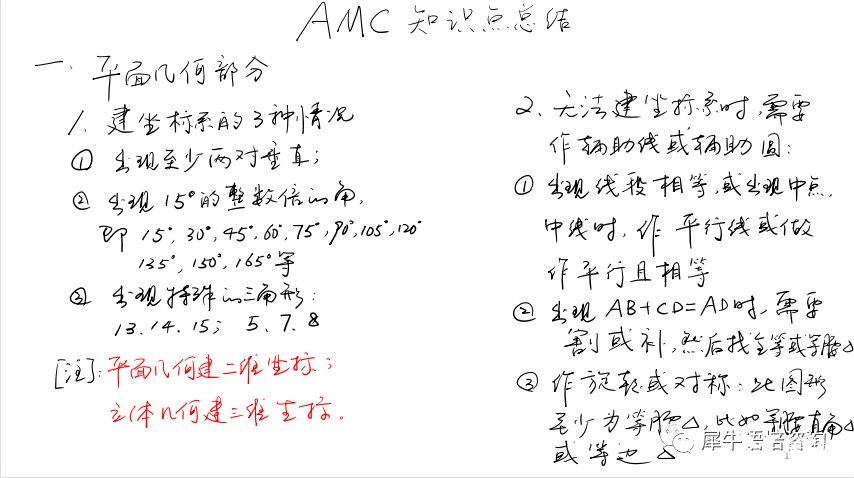 AMC 知识点总结
一、平面几何部分
1、建坐标系的3种情况
① 出现至少两对垂直;
② 出现15°的整数倍的角,
即 15°, 30°, 45°, 60°, 75°, 90°, 105°, 120°
135°, 150°, 165°等
③ 出现特殊的三角形:
13、14、15; 5、7、8
[注]: 平面几何建二维坐标;
立体几何建三维坐标.
2、无法建坐标系时,需要
作辅助线或辅助圆:
① 出现线段相等,或出现中点,
中线时,作平行线或做
作平行且相等
② 出现AB+CD=AD时,需要
割或补,然后找全等或等腰△
③ 作旋转或对称:此图形
至少为等腰△,比如等腰直角△
或等边△
犀牛语言咨询